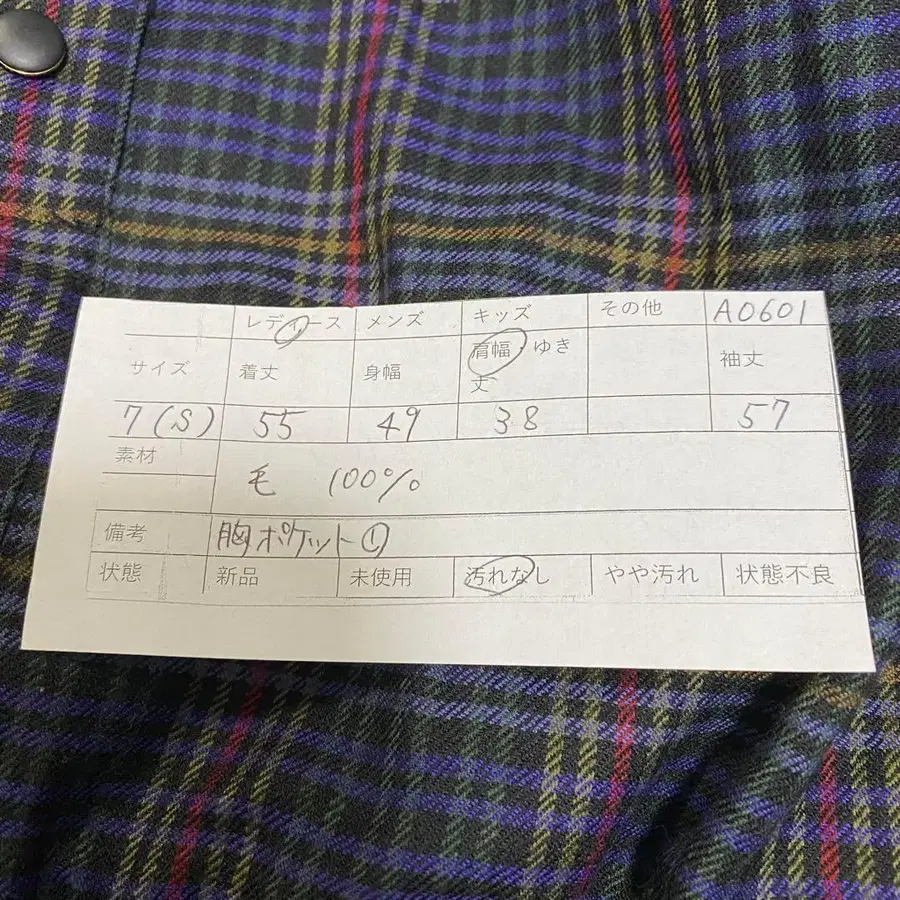 レディース メンズ キッズ その他 A0601
サイズ 着丈 身幅 肩幅・ゆき丈 袖丈
7(S) 55 49 38 57
素材 毛 100%
備考 胸ポケット①
状態 新品 未使用 汚れなし やや汚れ 状態不良